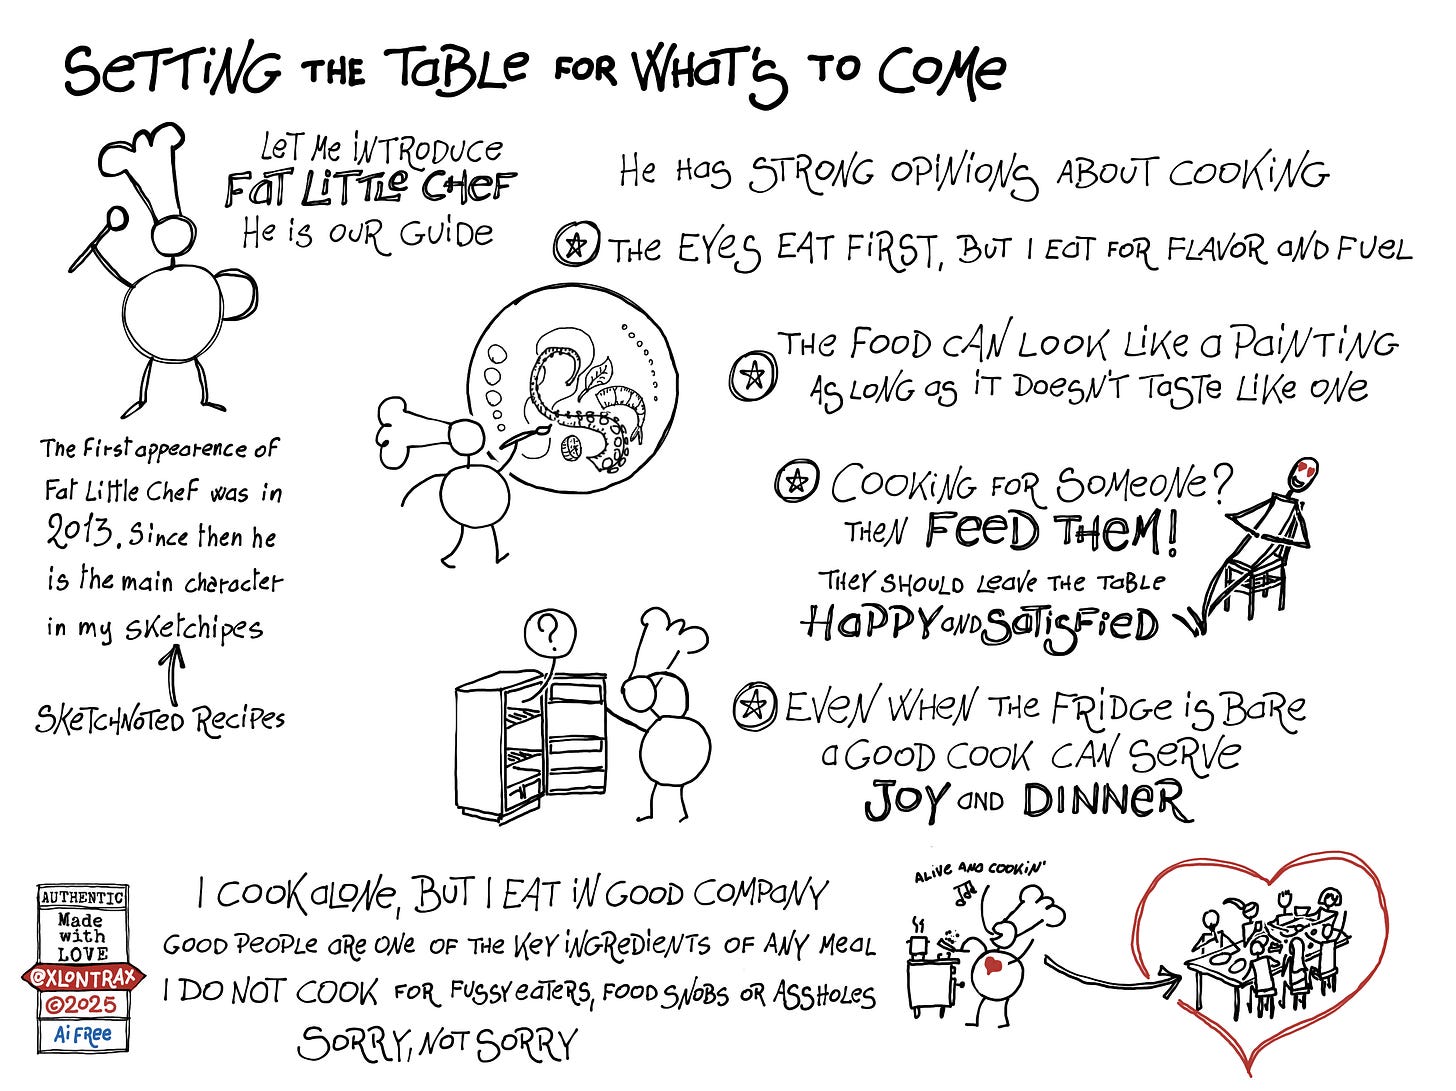 SETTiNG THE TaBLe FOR WHaT'S TO COMe
LeT Me iNTRODUCe
FaT LiTTLe CHeF
He is OUR GUiDe
The First appearence of
Fat Little Chef was in
2013. Since then he
is the main character
in my sketchipes
SKeTCHNOTED RecipeS
He Has STRONG OPiNiONS ABOUT COOKiNG
THe EYeS EAT FiRST, BUT I EaT FOR FLAVOR aND FUeL
THe FOOD CAN LOOK LiKe a PaiNTiNG
AS LONG aS iT DOeSN'T TaSTe LiKe ONe
COOKiNG FOR SOMeONe?
THeN FeeD THeM!
THEY SHOULD Leave THE TaBLe
HaPPY aND SaTiSFieD
?
EVeN WHeN THe FRiDGe iS BaRe
a GOOD COOK CAN SeRVe
JOY AND DINNeR
I COOK aLONe, BUT I EAT iN GOOD COMPaNY
GOOD PeOPLe aRe ONe OF THe KeY iNGReDieNTS OF ANY MeaL
I DO NOT COOK FOR FUSSY eaTeRS, FOOD SNOBS OR ASSHOLeS
SORRY, NOT SORRY
ALiVe AND COOKiN'
AUTHENTIC
Made
with
LOVE
@XLONTRAX
©2025
Ai FRee